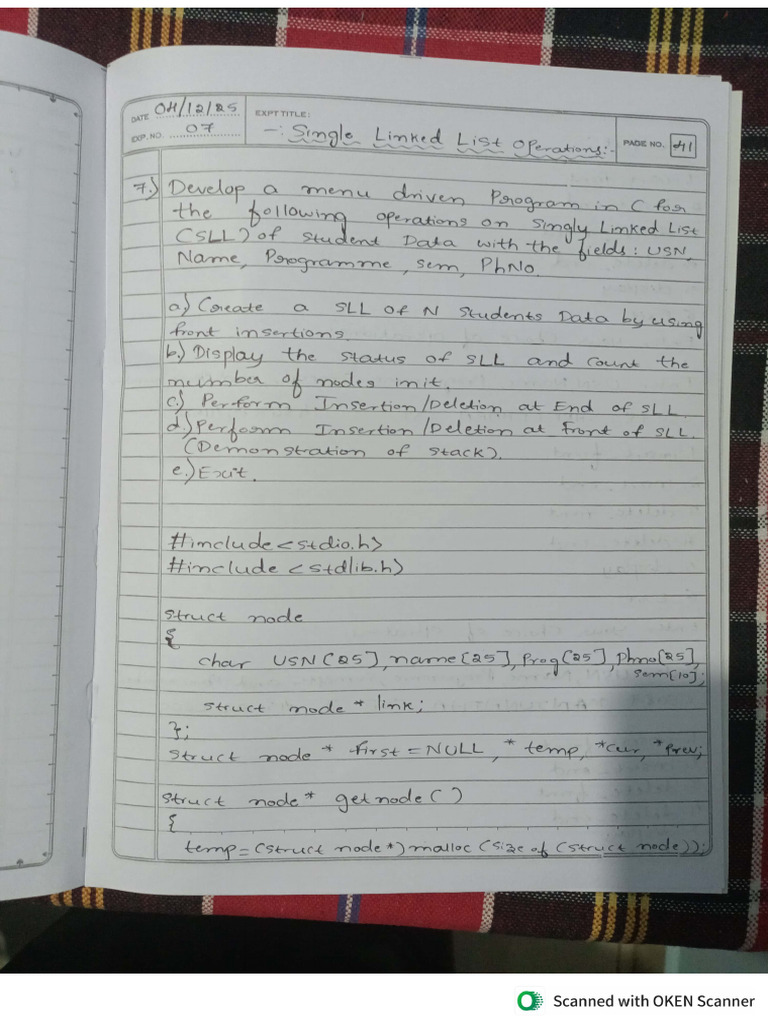 DATE 04/12/25
EXP.NO. 07
EXPT TITLE:
-: Single Linked List Operations:-
PAGE NO. 41
7.) Develop a menu driven Program in C for
the following operations on Singly Linked List
(SLL) of Student Data with the fields: USN,
Name, Programme, sem, PhNo.
a.) Create a SLL of N Students Data by using
front insertions.
b.) Display the status of SLL and count the
number of nodes in it.
c.) Perform Insertion/Deletion at End of SLL.
d.) Perform Insertion/Deletion at Front of SLL.
(Demonstration of stack).
e.) Exit.
#include <stdio.h>
#include <stdlib.h>
struct node
{
char USN[25], name[25], Prog[25], Phno[25],
sem[10];
struct node * link;
};
struct node * first = NULL, * temp, *cur, *prev;
struct node* getnode ( )
{
temp = (struct node*) malloc (size of (struct node));
Scanned with OKEN Scanner